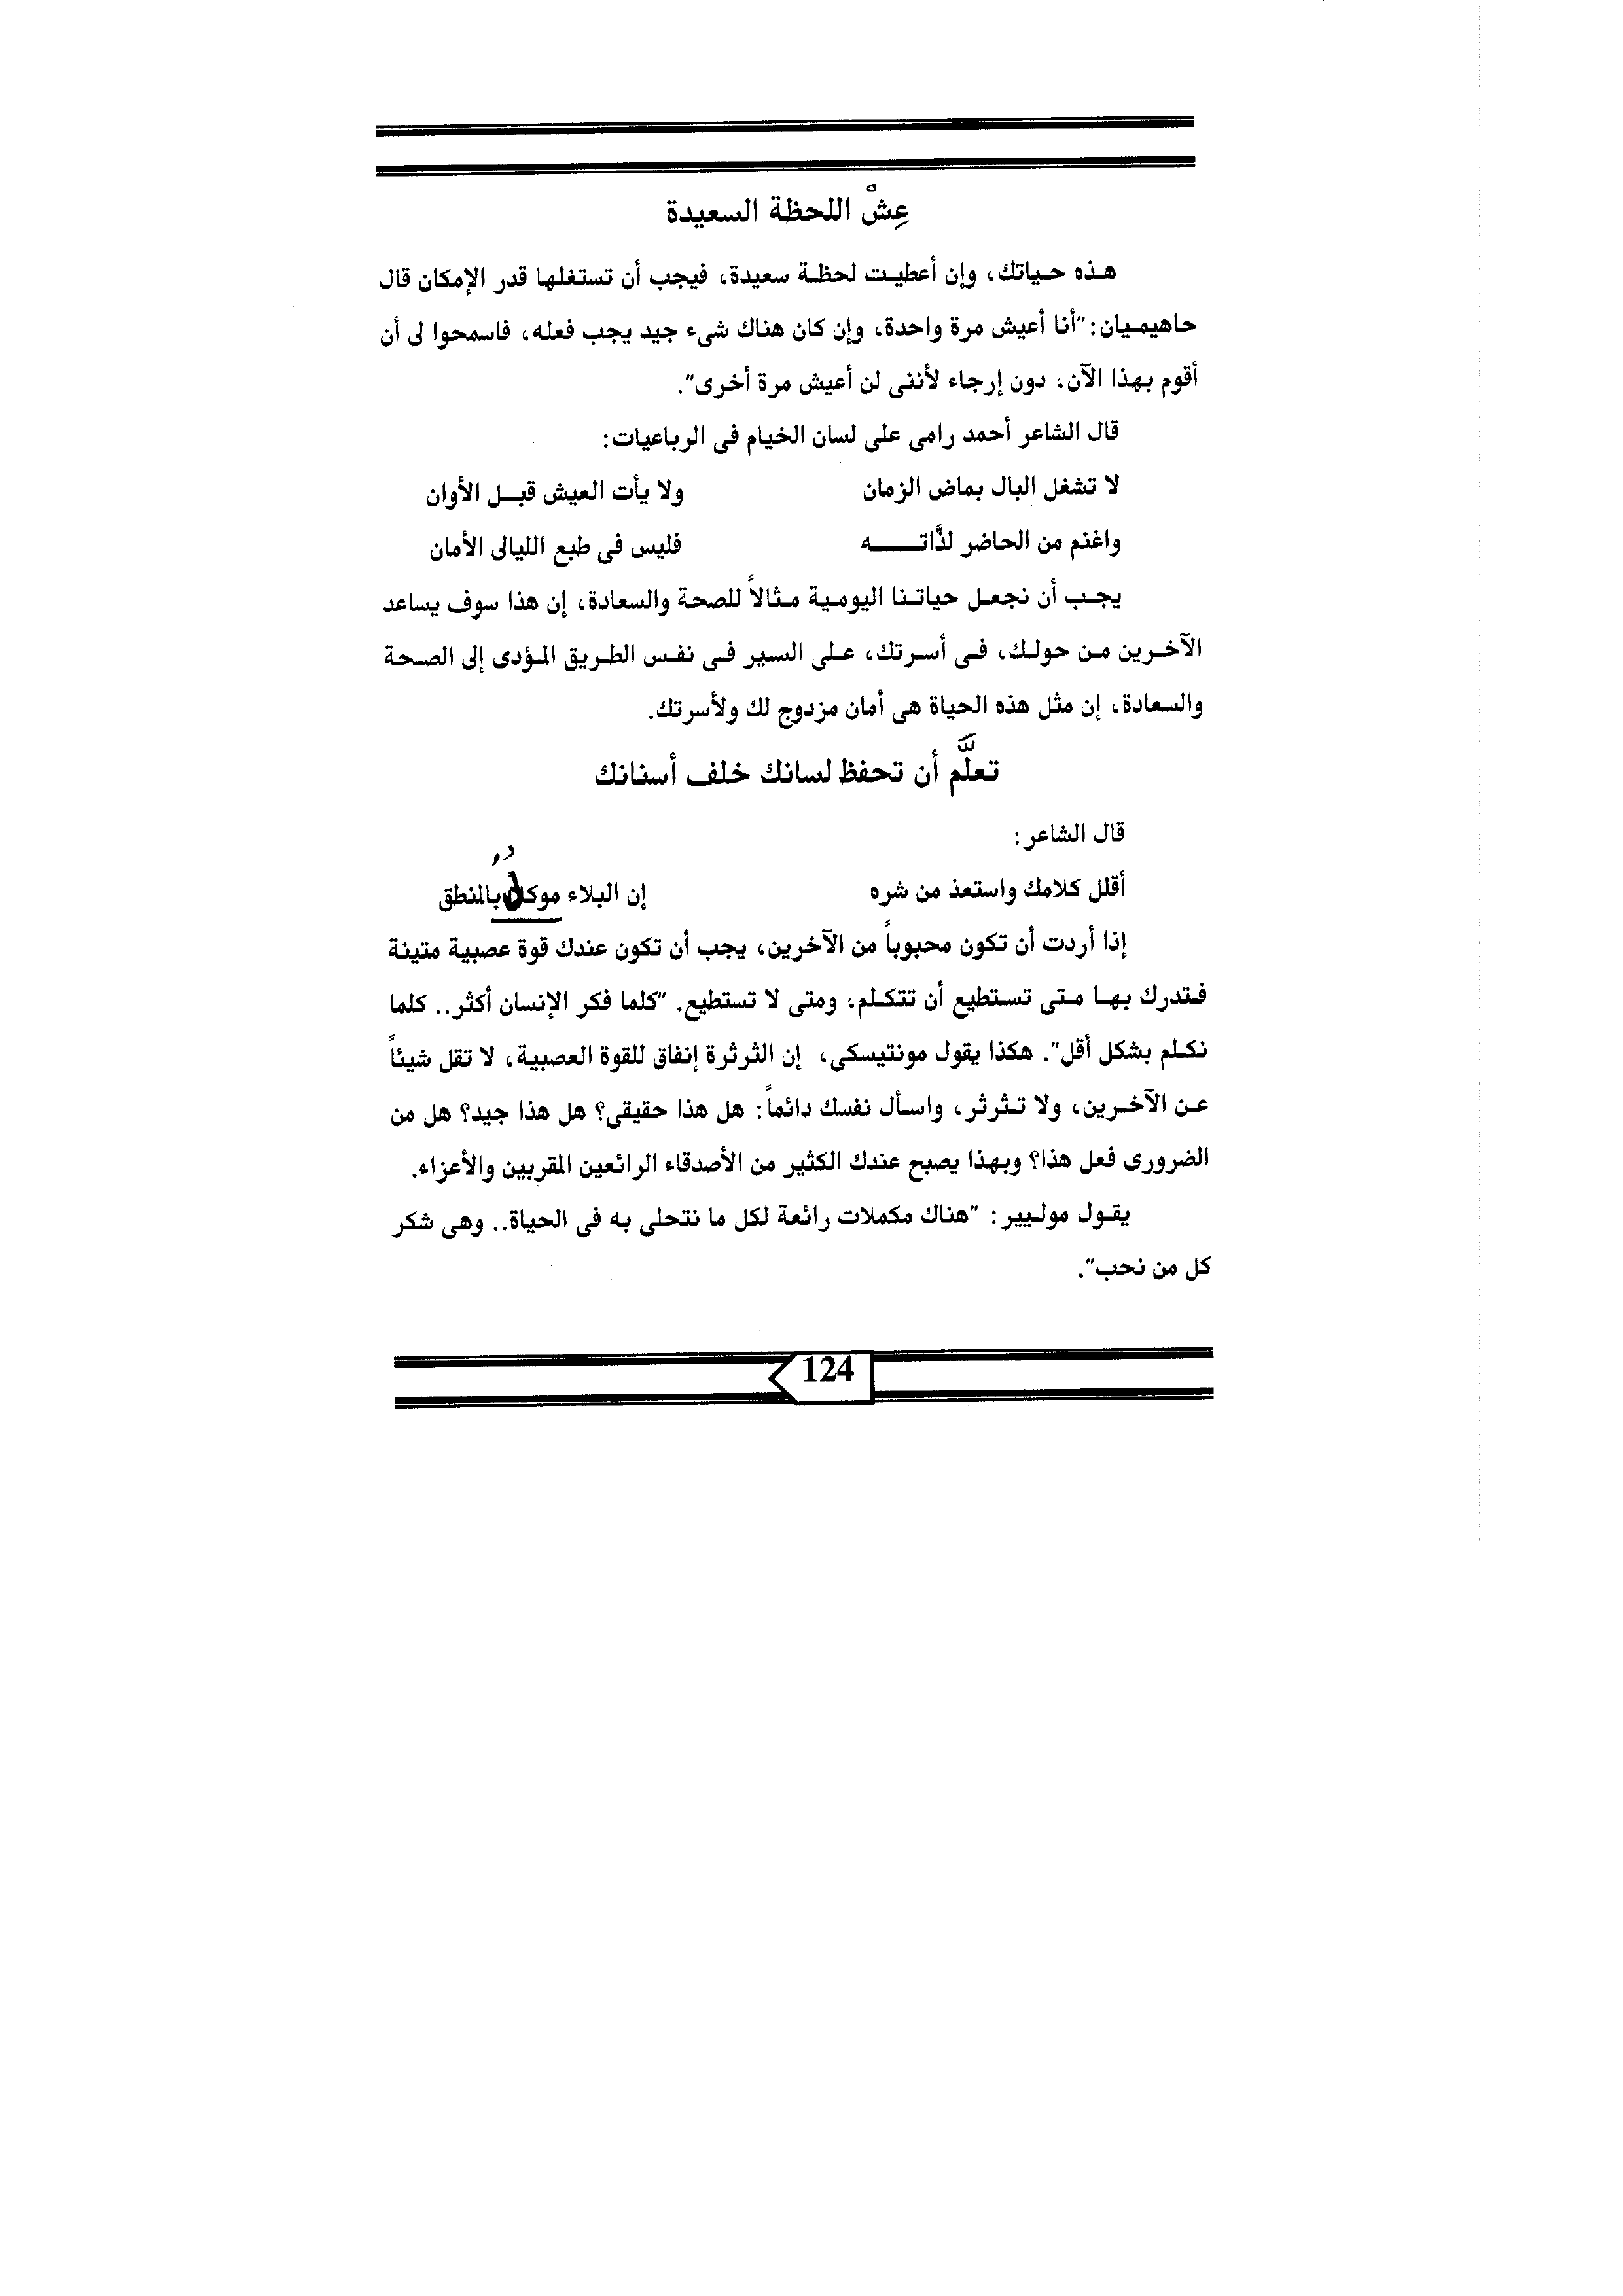 عِشْ اللحظة السعيدة
هذه حياتك، وإن أعطيت لحظة سعيدة، فيجب أن تستغلها قدر الإمكان قال
حاهيميان: "أنا أعيش مرة واحدة، وإن كان هناك شىء جيد يجب فعله، فاسمحوا لى أن
أقوم بهذا الآن، دون إرجاء لأننى لن أعيش مرة أخرى".
قال الشاعر أحمد رامى على لسان الخيام فى الرباعيات:
لا تشغل البال بماض الزمان ولا يأت العيش قبل الأوان
واغنم من الحاضر لذَّاته فليس فى طبع الليالى الأمان
يجب أن نجعل حياتنا اليومية مثالاً للصحة والسعادة، إن هذا سوف يساعد
الآخرين من حولك، فى أسرتك، على السير فى نفس الطريق المؤدى إلى الصحة
والسعادة، إن مثل هذه الحياة هى أمان مزدوج لك ولأسرتك.
تعلَّم أن تحفظ لسانك خلف أسنانك
قال الشاعر:
أقلل كلامك واستعذ من شره إن البلاء موكل بالمنطق
إذا أردت أن تكون محبوباً من الآخرين، يجب أن تكون عندك قوة عصبية متينة
فتدرك بها متى تستطيع أن تتكلم، ومتى لا تستطيع. "كلما فكر الإنسان أكثر.. كلما
نكلم بشكل أقل". هكذا يقول مونتيسكى، إن الثرثرة إنفاق للقوة العصبية، لا تقل شيئاً
عن الآخرين، ولا تثرثر، واسأل نفسك دائماً: هل هذا حقيقى؟ هل هذا جيد؟ هل من
الضرورى فعل هذا؟ وبهذا يصبح عندك الكثير من الأصدقاء الرائعين المقربين والأعزاء.
يقول موليير: "هناك مكملات رائعة لكل ما نتحلى به فى الحياة.. وهى شكر
كل من نحب".
124